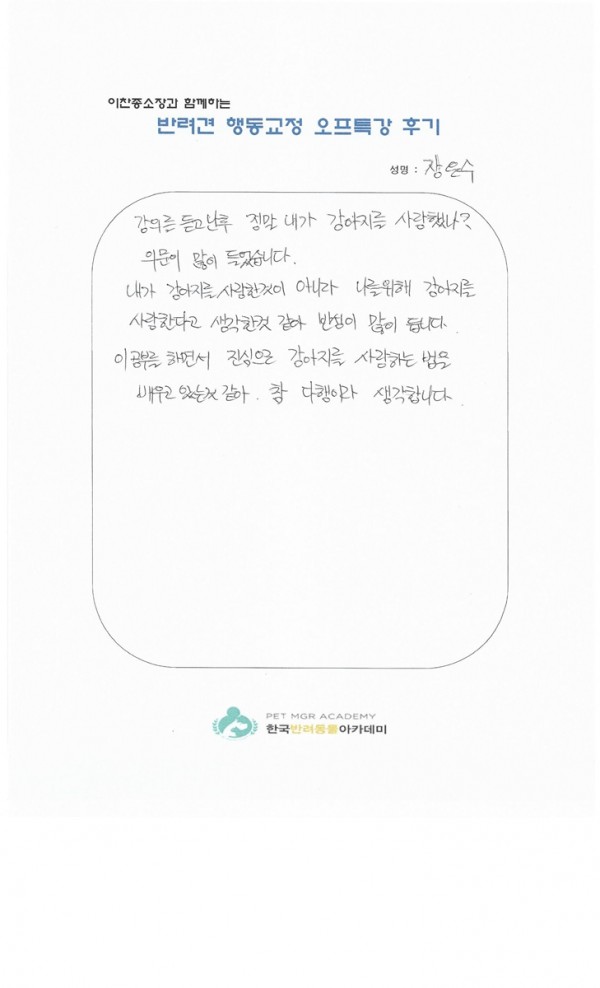 이찬종소장과 함께하는
반려견 행동교정 오프특강 후기
성명 : 장은수
강의를 듣고난후 정말 내가 강아지를 사랑했나?
의문이 많이 들었습니다.
내가 강아지를 사랑한것이 아니라 나를위해 강아지를
사랑한다고 생각한것 같아 반성이 많이 됩니다.
이공부를 하면서 진심으로 강아지를 사랑하는 법을
배우고 있는것 같아. 참 다행이라 생각합니다.
PET MGR ACADEMY
한국반려동물아카데미